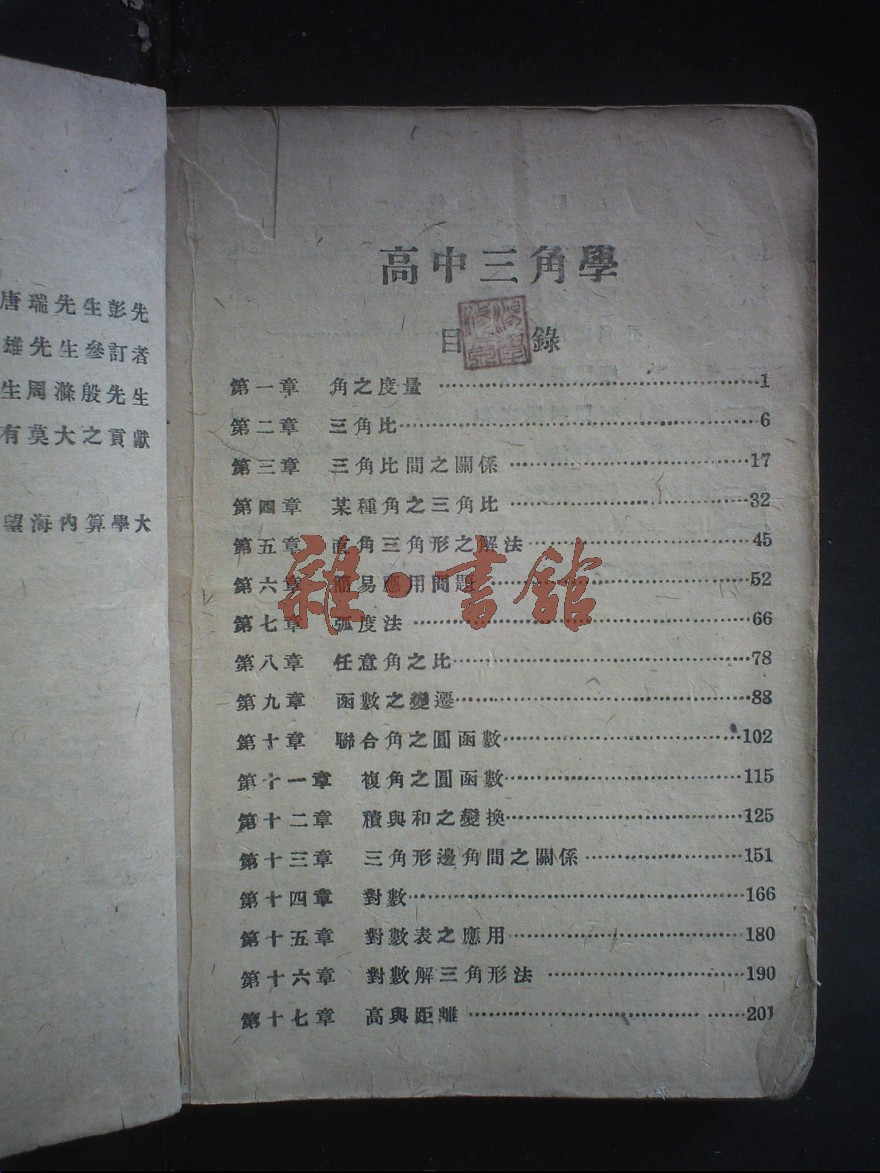 唐瑞先生彭先
雄先生參訂者
生周滌殷先生
有莫大之貢獻
望海內算學大
高中三角學
目錄
第一章 角之度量 ……1
第二章 三角比……6
第三章 三角比間之關係……17
第四章 某種角之三角比……32
第五章 直角三角形之解法……45
第六章 簡易應用問題……52
第七章 弧度法……66
第八章 任意角之比……78
第九章 函數之變遷……88
第十章 聯合角之圓函數……102
第十一章 複角之圓函數……115
第十二章 積與和之變換……125
第十三章 三角形邊角間之關係……151
第十四章 對數……166
第十五章 對數表之應用……180
第十六章 對數解三角形法……190
第十七章 高與距離……201
雜·書館